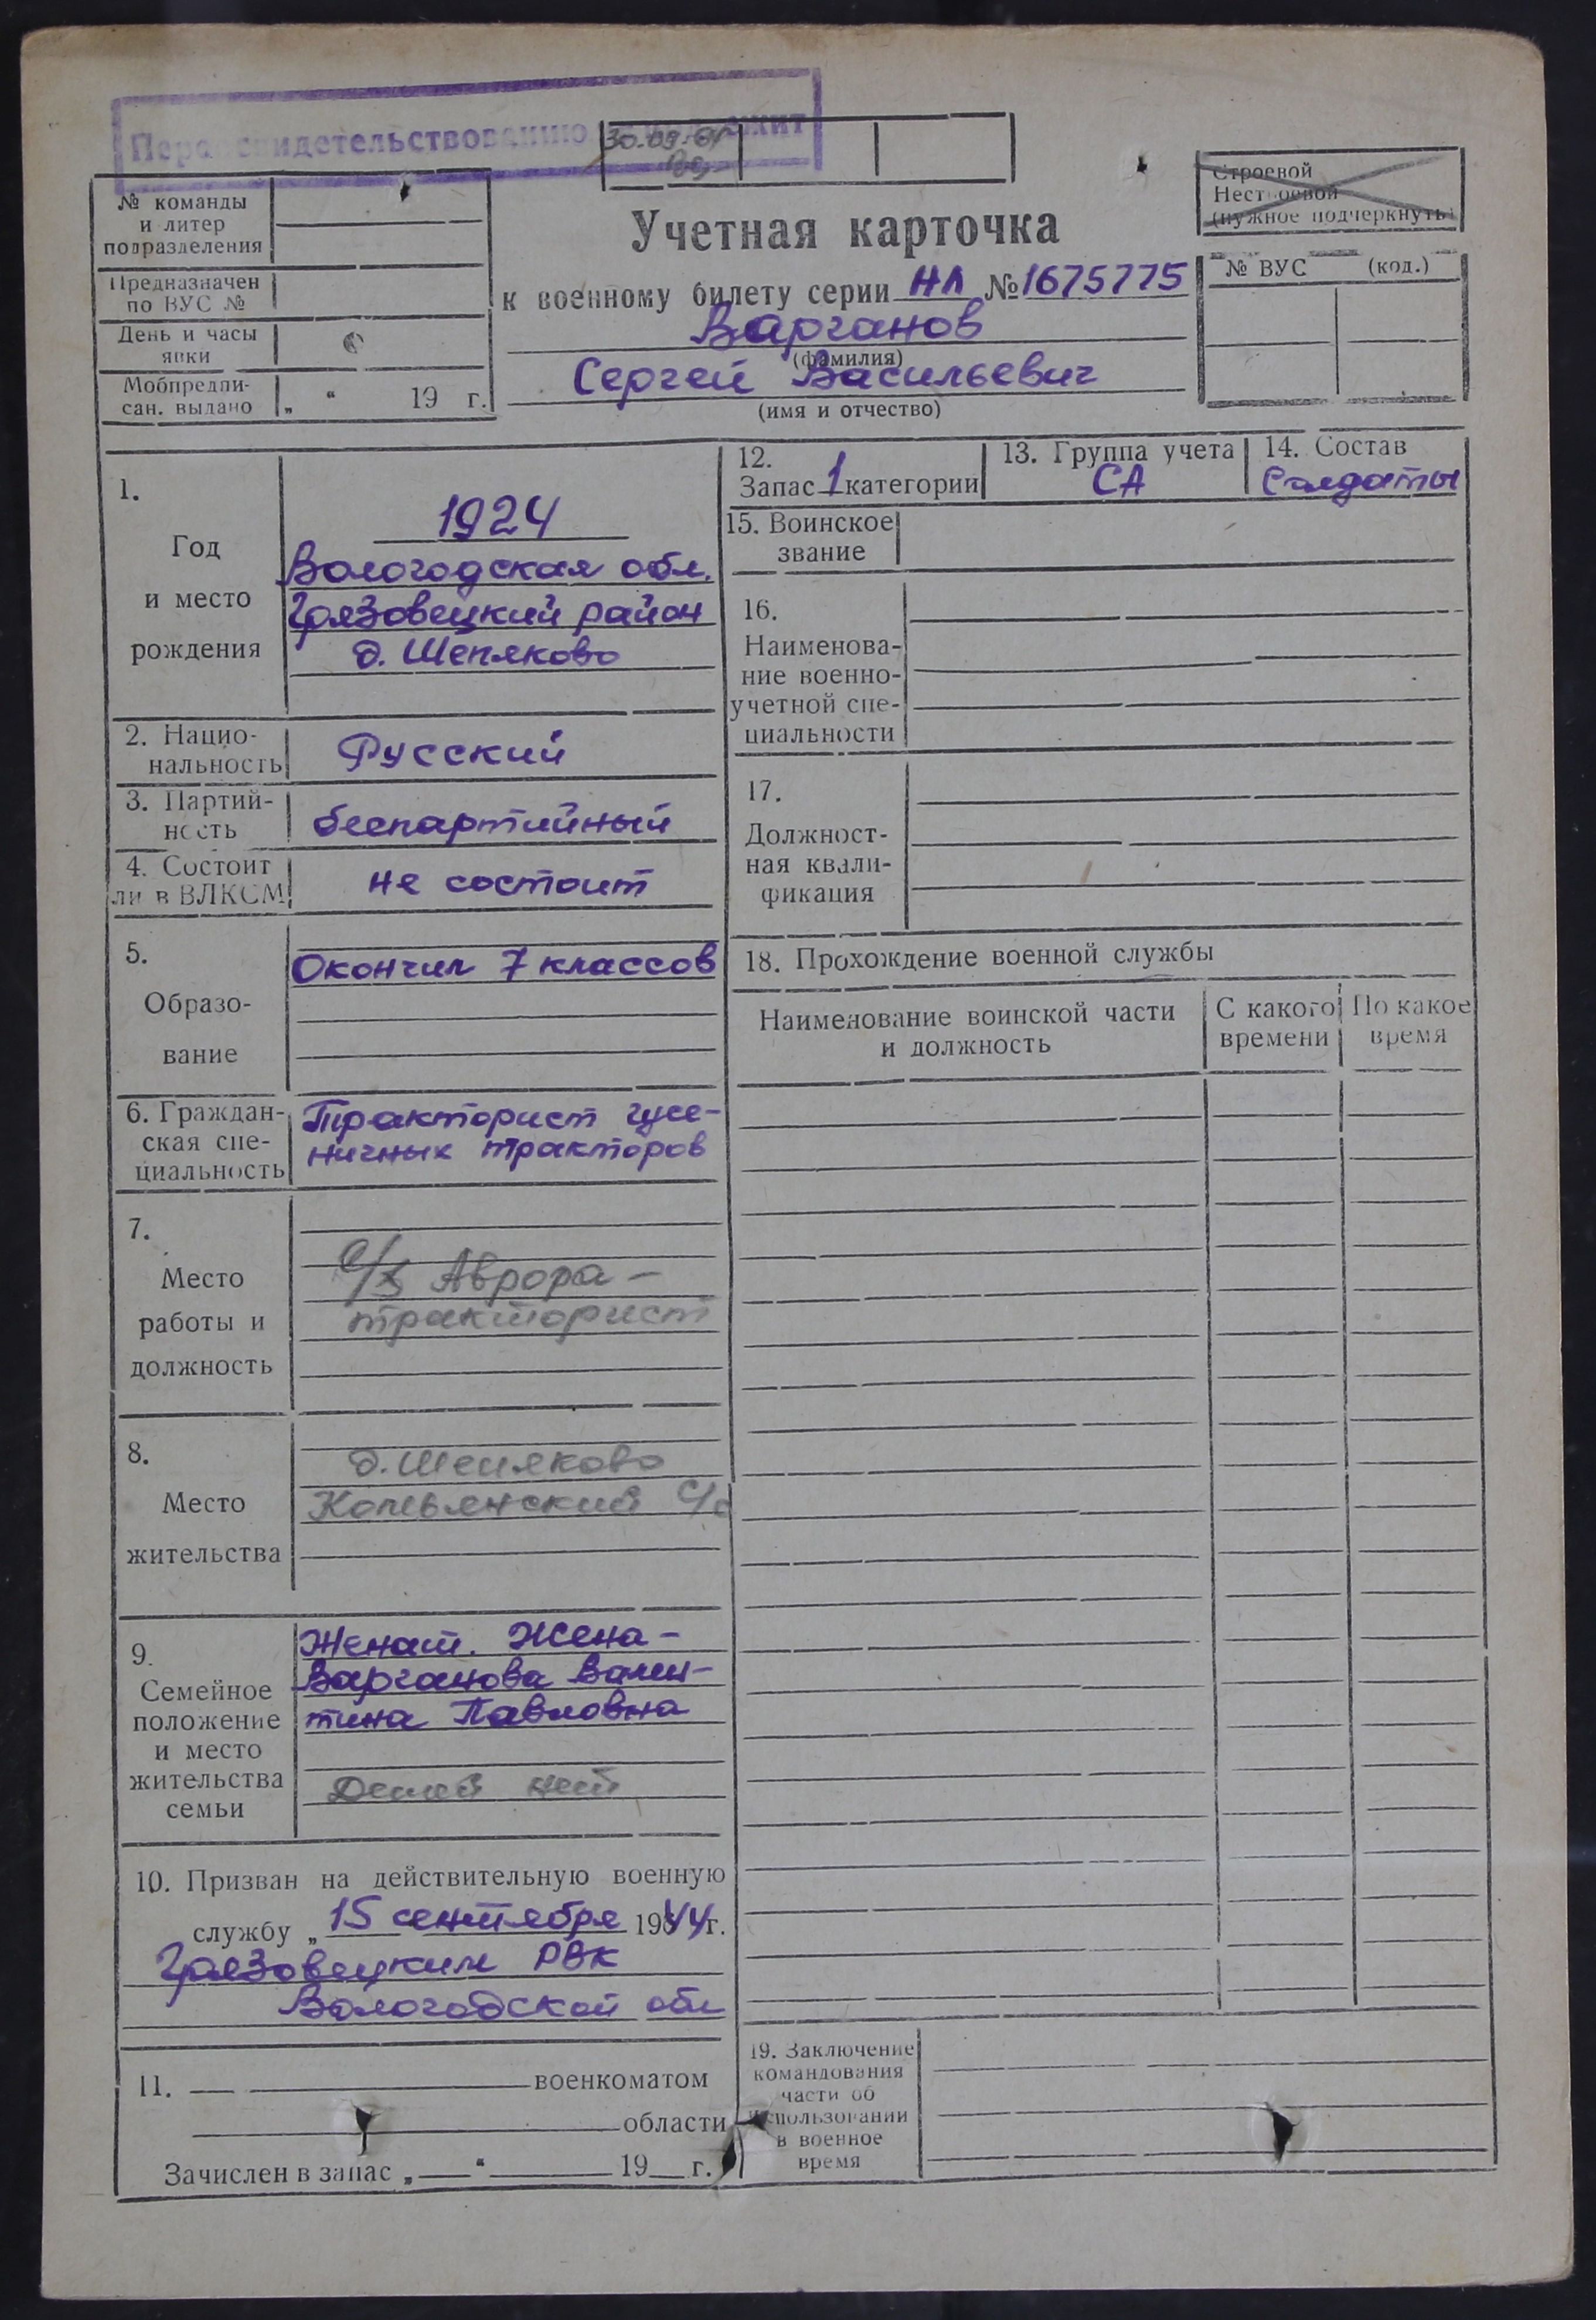 Переосвидетельствованию подлежит
30.09.
Строевой
Нестроевой
(нужное подчеркнуть)
№ команды
и литер
подразделения
Предназначен
по ВУС №
День и часы
явки
Мобпредпи-
сан. выдано „ “ 19 г.
Учетная карточка
к военному билету серии НЛ № 1675775
Варганов
(фамилия)
Сергей Васильевич
(имя и отчество)
№ ВУС (код.)
1.
Год
и место
рождения
1924
Вологодская обл.
Грязовецкий район
д. Шепяково
2. Нацио-
нальность
Русский
3. Партий-
ность
беспартийный
4. Состоит
ли в ВЛКСМ
не состоит
5.
Образо-
вание
Окончил 7 классов
6. Граждан-
ская спе-
циальность
Тракторист гусе-
ничных тракторов
7.
Место
работы и
должность
Аврора –
тракторист
8.
Место
жительства
д. Шепяково
Копьянский с/с
9.
Семейное
положение
и место
жительства
семьи
Женат. Жена –
Варганова Вален-
тина Павловна
Детей нет
10. Призван на действительную военную
службу „ 15 сентября 1944 г.
Грязовецким РВК
Вологодской обл
11. военкоматом
области
Зачислен в запас „ “ 19 г.
12.
Запас 1 категории
13. Группа учета
СА
14. Состав
Солдаты
15. Воинское
звание
16.
Наименова-
ние военно-
учетной спе-
циальности
17.
Должност-
ная квали-
фикация
18. Прохождение военной службы
Наименование воинской части
и должность
С какого
времени
По какое
время
19. Заключение
командования
части об
использовании
в военное
время